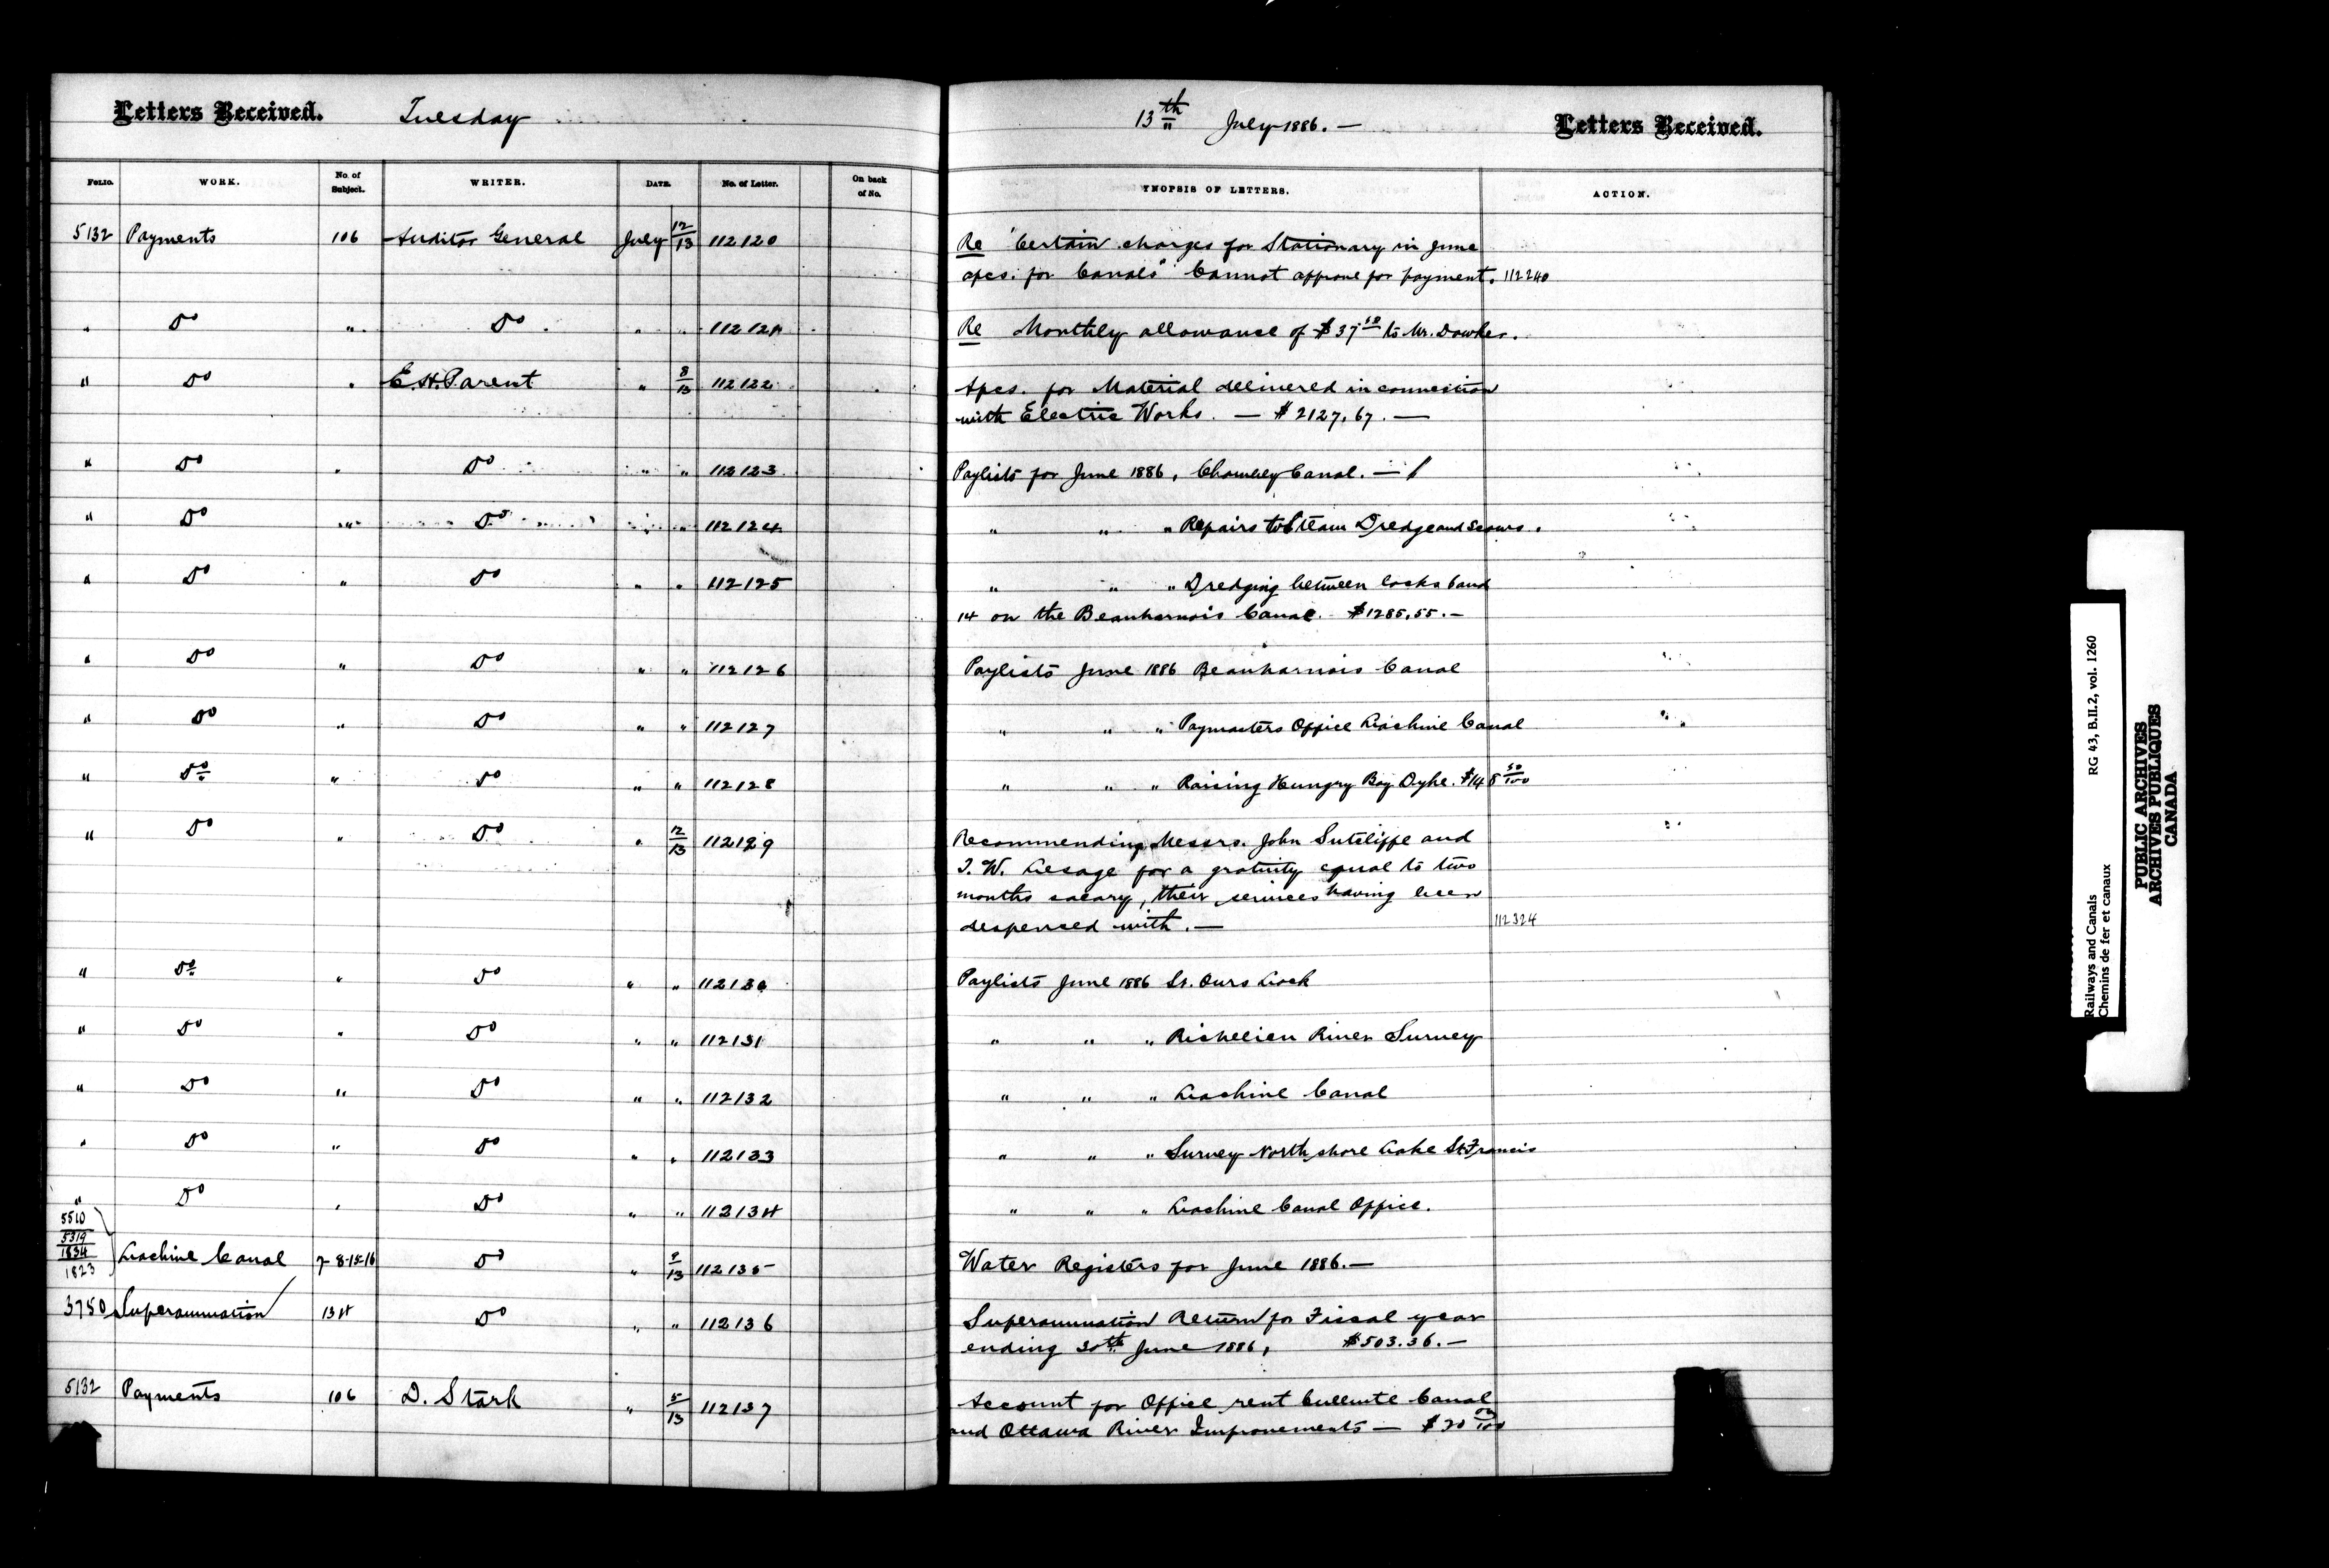 Letters Received. Tuesday 13th July 1886. — Letters Received.
FOLIO. WORK. No. of Subject. WRITER. DATE. No. of Letter. On back of No. YNOPSIS OF LETTERS. ACTION.
5132 Payments 106 Auditor General July 12/13 112120 Re "Certain charges for Stationary in June
apcs. for Canals" Cannot approve for payment. 112240
" Do " Do " " 112121 Re Monthly allowance of $37 50 to Mr. Dawker.
" Do " E.H. Parent " 8/13 112122 Apcs. for Material delivered in connection
with Electric Works. — $2127,67. —
" Do " Do " " 112123 Paylists for June 1886, Chambly Canal. —
" Do " Do " " 112124 " " " Repairs to Steam Dredge and Scows.
" Do " Do " " 112125 " " " Dredging between locks 6 and
14 on the Beauharnois Canal. $1285,55. —
" Do " Do " " 112126 Paylists June 1886 Beauharnois Canal
" Do " Do " " 112127 " " " Paymasters Office Lachine Canal
" Do " Do " " 112128 " " " Raising Hungry Bay Dyke. $148 50/100
" Do " Do " 12/13 112129 Recommending Messrs. John Sutcliffe and
J. W. Lesage for a gratuity equal to two
months salary, their services having been
dispensed with. — 112324
" Do " Do " " 112130 Paylists June 1886 St. Ours Lock
" Do " Do " " 112131 " " " Richelieu River Survey
" Do " Do " " 112132 " " " Lachine Canal
" Do " Do " " 112133 " " " Survey North shore Lake St. Francis
" Do " Do " " 112134 " " " Lachine Canal Office.
5510
5319
1834
1823
Lachine Canal 7-8-15-16 Do " 9/13 112135 Water Registers for June 1886. —
3750 Superannuation 134 Do " " 112136 Superannuation Return for Fiscal year
ending 30th June 1886, $503.36. —
5132 Payments 106 D. Stark " 5/13 112137 Account for Office rent Cullbute Canal
and Ottawa River Improvements — $20 00/100
RG 43, B.II.2, vol. 1260
Railways and Canals
Chemins de fer et canaux
PUBLIC ARCHIVES
ARCHIVES PUBLIQUES
CANADA